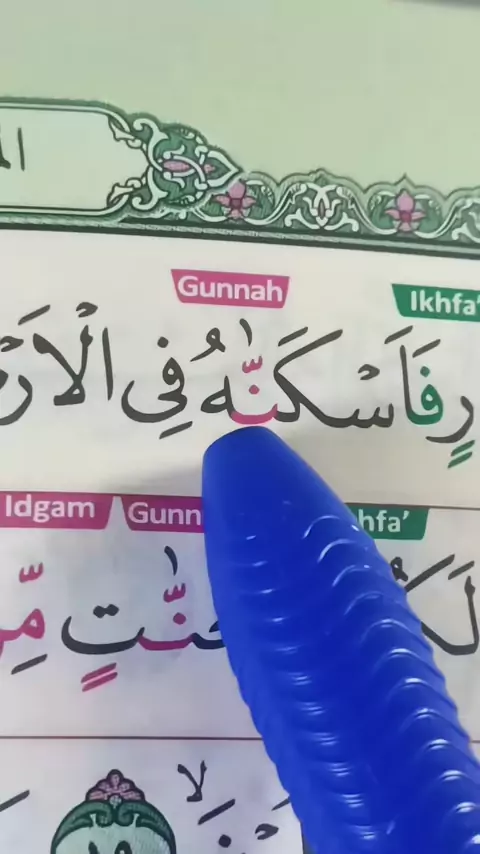 Gunnah Ikhfa'
رٍ فَاَسْكَنّٰهُ فِى الْاَرْ
Idgam Gunn hfa'
نّٰتٍ مِّ
لا
١٩